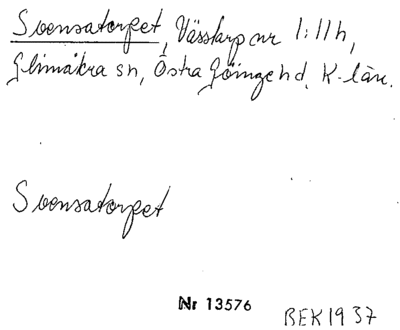 Svensatorpet, Vässtarp nr 1:11 h,
Glimåkra sn, Östra Göinge hd, K-län.
Svensatorpet
Nr 13576
BEK 1937